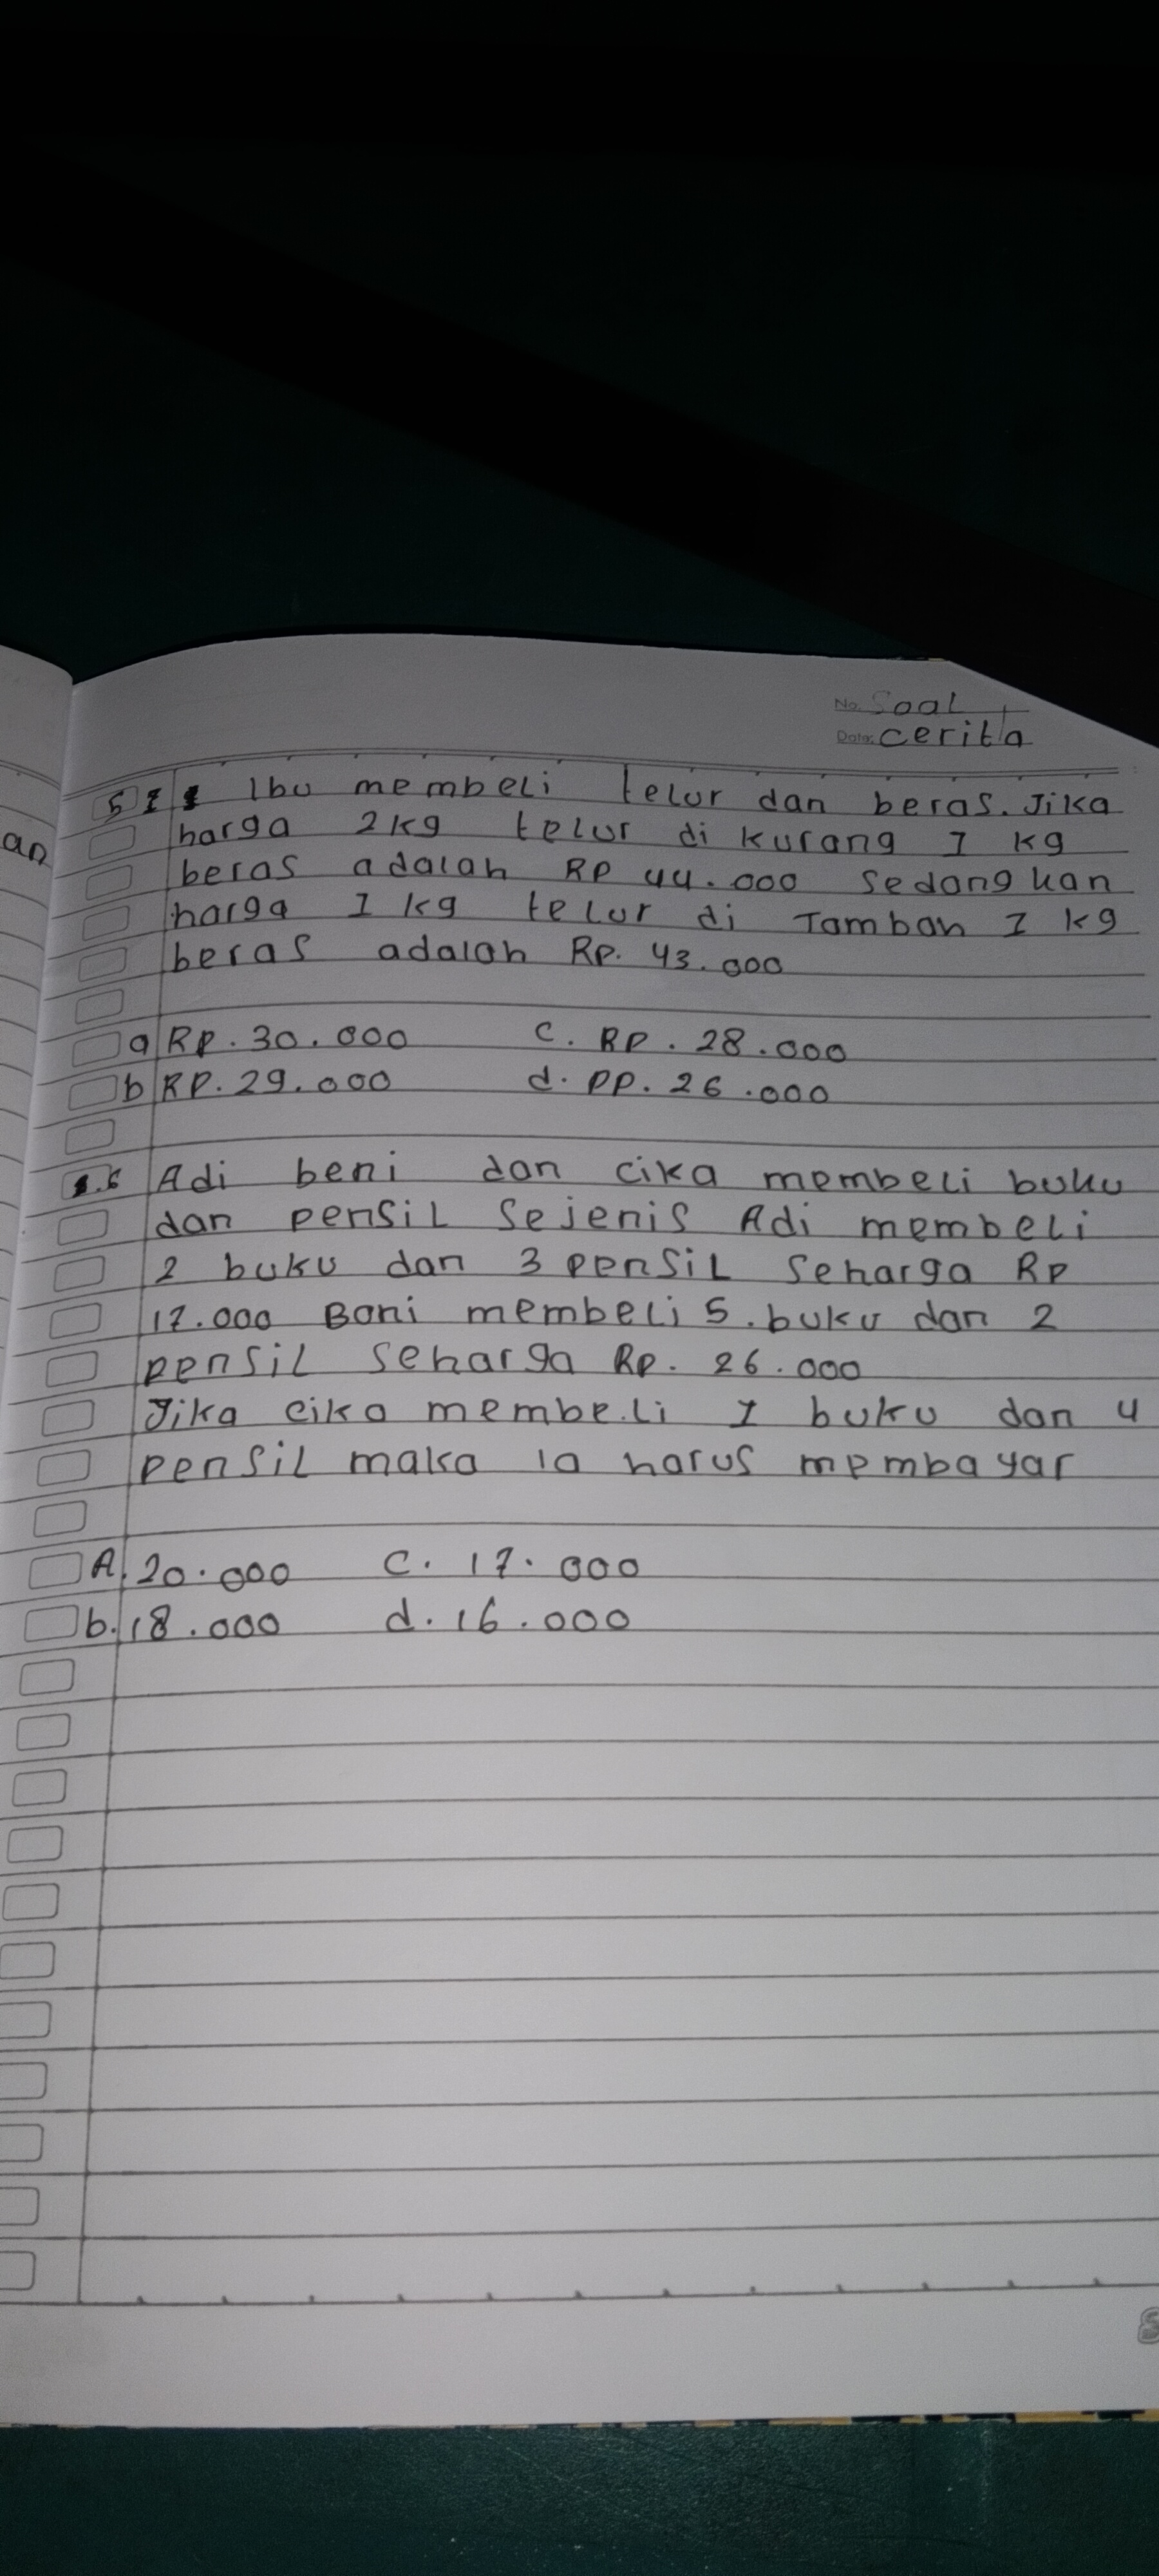 No. Soal
Date: cerita
5 Ibu membeli telur dan beras. Jika
harga 2 kg telur di kurang 1 kg
beras adalah RP 44.000 sedangkan
harga 1 kg telur di Tambah 1 kg
beras adalah Rp. 43.000
a RP. 30.000 c. RP. 28.000
b RP. 29.000 d. PP. 26.000
6 Adi beni dan cika membeli buku
dan pensil sejenis Adi membeli
2 buku dan 3 pensil seharga RP
17.000 Boni membeli 5. buku dan 2
pensil seharga Rp. 26.000
Jika cika membeli 1 buku dan 4
pensil maka ia harus membayar
A. 20.000 C. 17.000
b. 18.000 d. 16.000